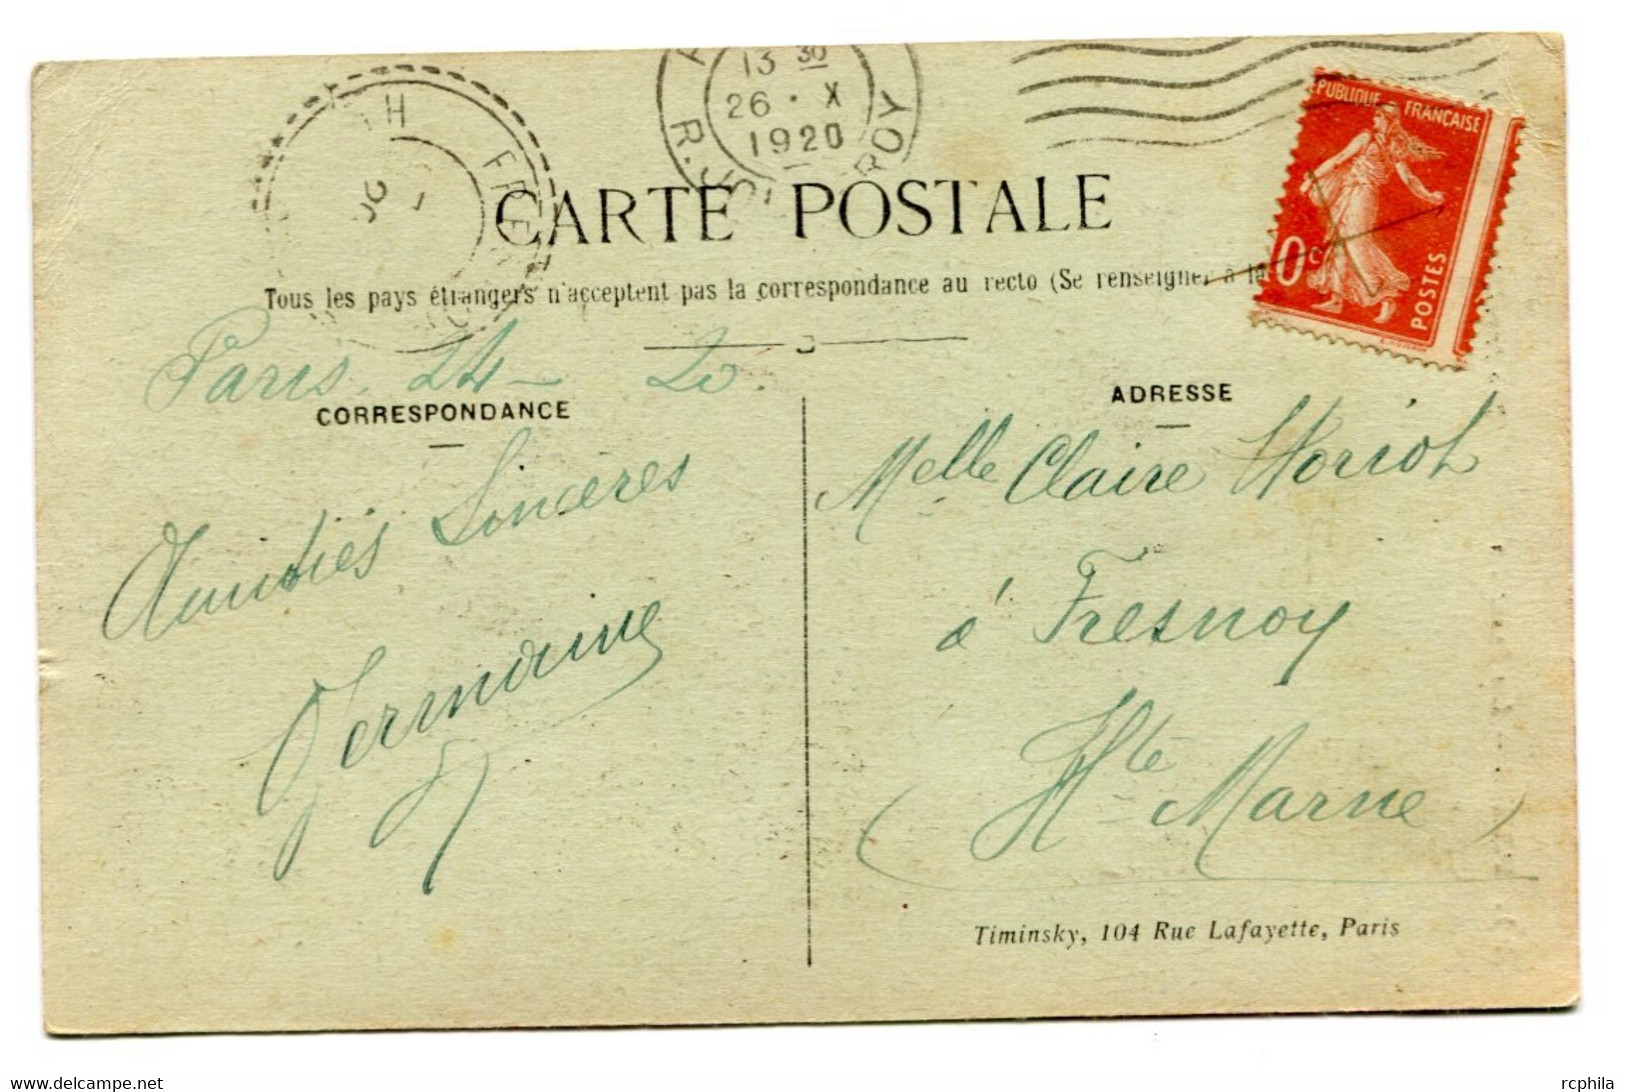 13 30
26 · X
1920
PUBLIQUE FRANÇAISE
0c
POSTES
CARTE POSTALE
Tous les pays étrangers n'acceptent pas la correspondance au recto (Se renseigner à la
Paris 24 - 20.
CORRESPONDANCE
Amitiés Sincères
Germaine
ADRESSE
Melle Claire Horiot
à Fresnoy
Hte Marne
Timinsky, 104 Rue Lafayette, Paris
rcphila
www.delcampe.net